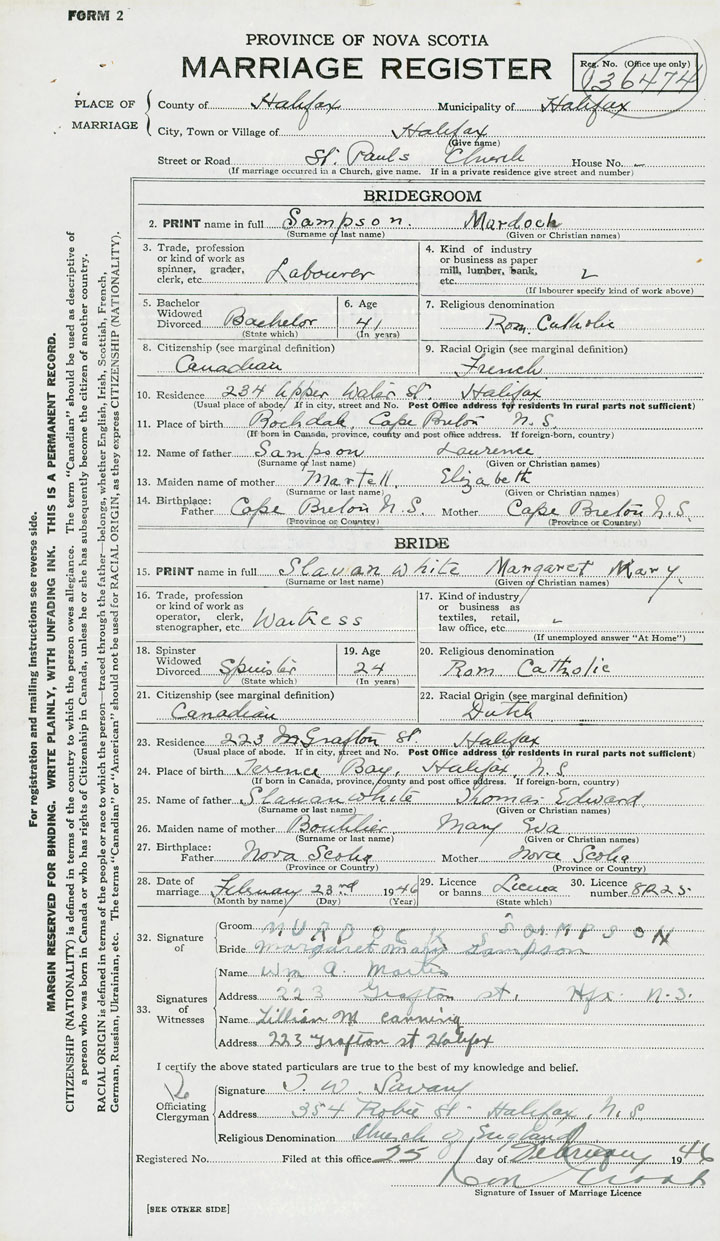 FORM 2
PROVINCE OF NOVA SCOTIA
MARRIAGE REGISTER
Reg. No. (Office use only)
136474
PLACE OF MARRIAGE
County of Halifax Municipality of Halifax
City, Town or Village of Halifax
(Give name)
Street or Road St. Pauls Church House No. -
(If marriage occurred in a Church, give name. If in a private residence give street and number)
BRIDEGROOM
2. PRINT name in full Sampson. Mardock
(Surname or last name) (Given or Christian names)
3. Trade, profession or kind of work as spinner, grader, clerk, etc. Labourer
4. Kind of industry or business as paper mill, lumber, bank, etc.
(If labourer specify kind of work above)
5. Bachelor Widowed Divorced Bachelor
(State which)
6. Age 41
(In years)
7. Religious denomination
Rom. Catholic
8. Citizenship (see marginal definition)
Canadian
9. Racial Origin (see marginal definition)
French
10. Residence 234 Upper Water St. Halifax
(Usual place of abode. If in city, street and No. Post Office address for residents in rural parts not sufficient)
11. Place of birth Rochdale, Cape Breton N.S.
(If born in Canada, province, county and post office address. If foreign-born, country)
12. Name of father Sampson Laurence
(Surname or last name) (Given or Christian names)
13. Maiden name of mother Martell, Elizabeth
(Surname or last name) (Given or Christian names)
14. Birthplace: Father Cape Breton N.S. Mother Cape Breton N.S.
(Province or Country) (Province or Country)
BRIDE
15. PRINT name in full Slauanwhite Margaret Mary,
(Surname or last name) (Given or Christian names)
16. Trade, profession or kind of work as operator, clerk, stenographer, etc. Waitress
17. Kind of industry or business as textiles, retail, law office, etc.
(If unemployed answer "At Home")
18. Spinster Widowed Divorced Spinster
(State which)
19. Age 24
(In years)
20. Religious denomination
Rom Catholic
21. Citizenship (see marginal definition)
Canadian
22. Racial Origin (see marginal definition)
Dutch
23. Residence 223 Grafton St. Halifax
(Usual place of abode. If in city, street and No. Post Office address for residents in rural parts not sufficient)
24. Place of birth Terence Bay, Halifax, N.S.
(If born in Canada, province, county and post office address. If foreign-born, country)
25. Name of father Slauanwhite Thomas Edward
(Surname or last name) (Given or Christian names)
26. Maiden name of mother Boutilier Mary Eva
(Surname or last name) (Given or Christian names)
27. Birthplace: Father Nova Scotia Mother Nova Scotia
(Province or Country) (Province or Country)
28. Date of marriage February 23rd 1946
(Month by name) (Day) (Year)
29. Licence or banns Licence
(State which)
30. Licence number 8R25
32. Signature of
Groom MURDOCK SAMPSON
Bride Margaret Mary Sampson
33. Signatures of Witnesses
Name Wm A. Martin
Address 223 Grafton st. Hfx. N.S.
Name Lillian M Canning
Address 223 Grafton st Halifax
I certify the above stated particulars are true to the best of my knowledge and belief.
Officiating Clergyman
Signature T. W. Savary
Address 354 Robie St. Halifax, N.S
Religious Denomination Church of England
Registered No. Filed at this office 25 day of February 1946
Signature of Issuer of Marriage Licence
[SEE OTHER SIDE]
For registration and mailing instructions see reverse side.
MARGIN RESERVED FOR BINDING. WRITE PLAINLY, WITH UNFADING INK. THIS IS A PERMANENT RECORD.
CITIZENSHIP (NATIONALITY) is defined in terms of the country to which the person owes allegiance. The term "Canadian" should be used as descriptive of
a person who was born in Canada or who has rights of Citizenship in Canada, unless he or she has subsequently become the citizen of another country.
RACIAL ORIGIN is defined in terms of the people or race to which the person—traced through the father—belongs, whether English, Irish, Scottish, French,
German, Russian, Ukrainian, etc. The terms "Canadian" or "American" should not be used for RACIAL ORIGIN, as they express CITIZENSHIP (NATIONALITY).